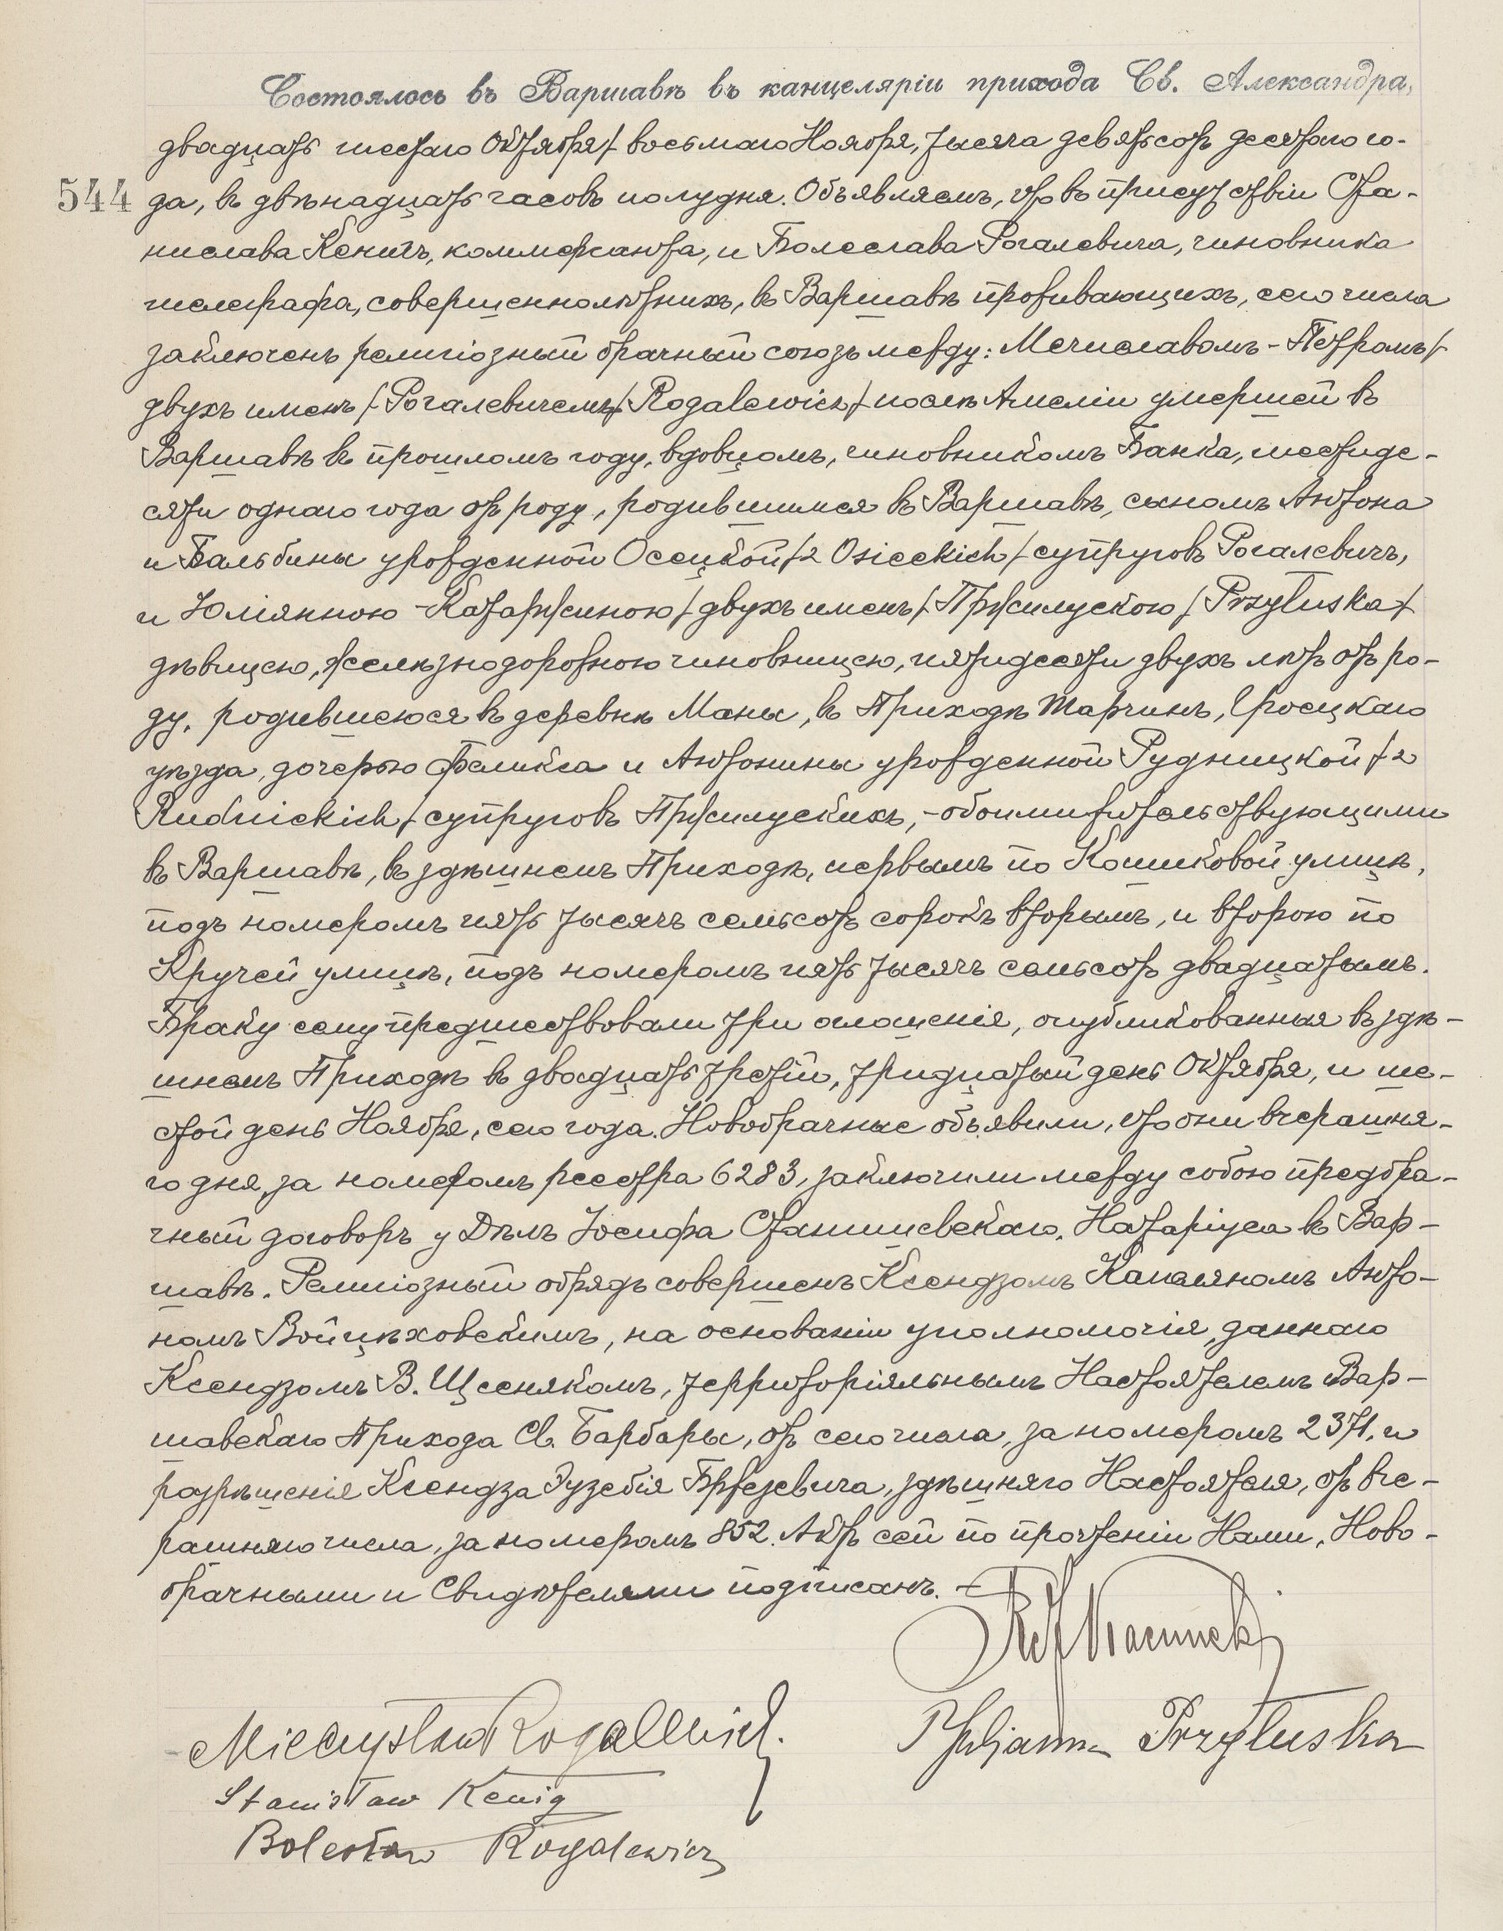 Состоялось въ Варшавѣ въ канцеляріи прихода Св. Александра,
двадцать шестаго Октября/ восьмаго Ноября, тысяча девятьсотъ десятаго го-
544 да, въ двѣнадцать часовъ полудня. Объявляемъ, что въ присутствіи Ста-
нислава Кенигъ, коммерсанта, и Болеслава Рогалевича, чиновника
телеграфа, совершеннолѣтнихъ, въ Варшавѣ проживающихъ, сего числа
заключенъ религіозный брачный союзъ между: Мечиславомъ-Петромъ/
двухъ именъ/ Рогалевичемъ/ Rogalewicz/ послѣ Амеліи умершей въ
Варшавѣ въ прошломъ году, вдовцомъ, чиновникомъ Банка, шестиде-
сяти однаго года отъ роду, родившимся въ Варшавѣ, сыномъ Антона
и Бальбины урожденной Осецкой/z Osieckich/ супруговъ Рогалевичъ,
и Юліянною-Катаржиною/ двухъ именъ/ Пржилускою/ Przyłuska/
дѣвицею, желѣзнодорожною чиновницею, пятидесяти двухъ лѣтъ отъ ро-
ду, родившеюся въ деревнѣ Маны, въ Приходѣ Тарчинъ, Гроецкаго
уѣзда, дочерью Феликса и Антонины урожденной Рудницкой/z
Rudnickich/ супруговъ Пржилускихъ,-обоими жительствующими
въ Варшавѣ, въ здѣшнемъ Приходѣ, первымъ по Кошиковой улицѣ,
подъ номеромъ пять тысячъ семьсотъ сорокъ вторымъ, и второю по
Кручей улицѣ, подъ номеромъ пять тысячъ семьсотъ двадцатымъ.
Браку сему предшествовали три оглашенія, опубликованныя въ здѣ-
шнемъ Приходѣ въ двадцать третій, тридцатый день Октября, и ше-
стой день Ноября, сего года. Новобрачные объявили, что они вчерашня-
го дня, за номеромъ реестра 6283, заключили между собою предбра-
чный договоръ у Дѣлъ Іосифа Сташишевскаго, Натаріуса въ Вар-
шавѣ. Религіозный обрядъ совершенъ Ксендзомъ Капеляномъ Анто-
номъ Войцѣховскимъ, на основаніи уполномочія, даннаго
Ксендзомъ В. Щеснякомъ, территоріяльнымъ Настоятелемъ Вар-
шавскаго Прихода Св. Барбары, отъ сего числа, за номеромъ 2371, и
разрѣшенія Ксендза Эузебія Брżезевича, здѣшняго Настоятеля, отъ вче-
рашняго числа, за номеромъ 852. Актъ сей по прочтеніи Нами, Ново-
брачными и Свидѣтелями подписанъ. –
Mieczysław Rogalewicz. Juljanna Przyłuska
Stanisław Kenig
Bolesław Rogalewicz